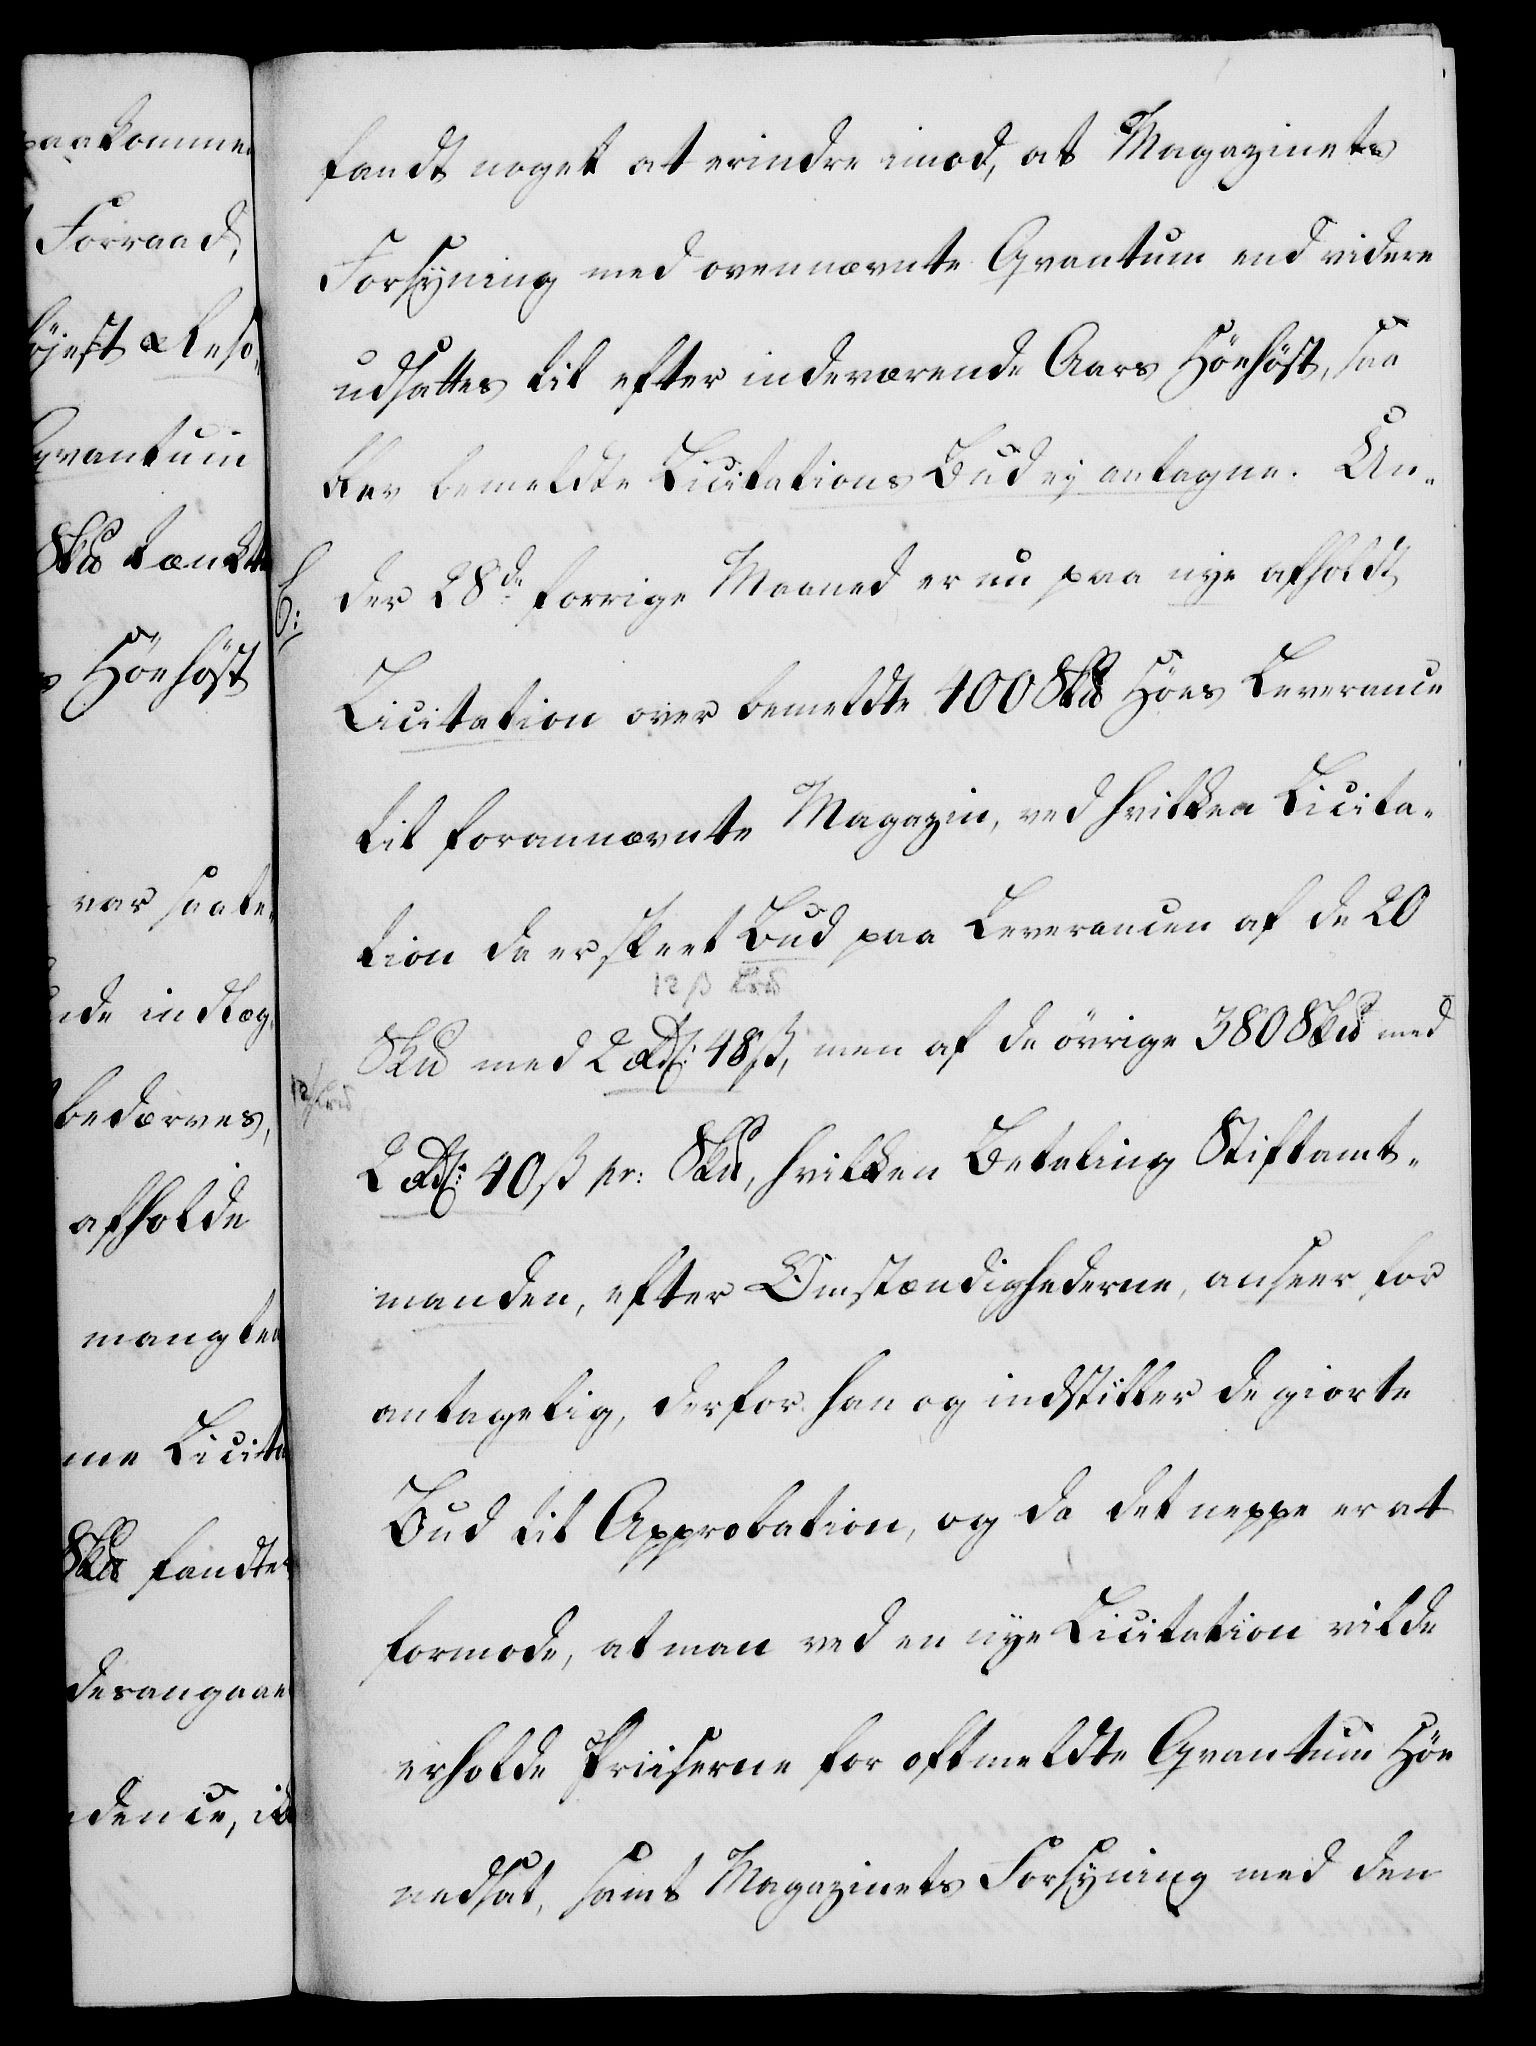 paakomme
Forraad,
höjest Reso-
Qvantum
Skd tænkte
Höehöst
var saale-
nde indlæg
bedærves,
afholde
mangler
me Licita
Skd fandtes
desangaae
dence, ik
fandt noget at erindre imod, at Magazinets
Forsyning med ovennævnte Qvantum end videre
udsattes til efter indeværende Aars Höehöst, saa
blev bemeldte Licitations Bud ej antagne. Un-
der 28de forrige Maaned er nu paa nye afholdt
Licitation over bemeldte 400 Skd Höes Leverance
til forannævnte Magazin, ved hvilken Licita-
tion der er skeet Bud paa Leverancen af de 20
12 ß Lvd
Skd med 2 Rd: 48 ß, men af de övrige 380 Skd med
2 Rd: 40 ß pr: Skd, hvilken Betaling Stiftamt-
manden, efter Omstændighederne, anseer for
antagelig, derfor han og indstiller de giorte
Bud til Approbation, og da det neppe er at
formode, at man ved en nye Licitation vilde
erholde Priiserne for oftmeldte Qvantum Höe
nedsat, samt Magazinets Forsyning med den